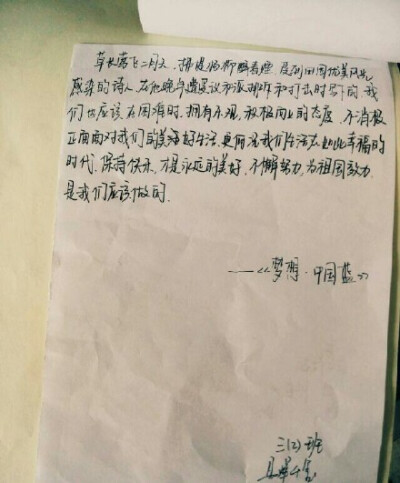 草长莺飞二月天,拂堤杨柳醉春烟,受到田园优美风光
感染的诗人,在他晚年遭受议和派排斥和打击时写下的,我
们也应该在困难时,拥有乐观,积极向上的态度,不消极
正面面对我们的美好的生活,更何况我们生活在如此幸福的
时代,保持快乐,才是永远的美好,不懈努力,为祖国效力,
是我们应该做的.
——《梦想·中国蓝》
三(2)班